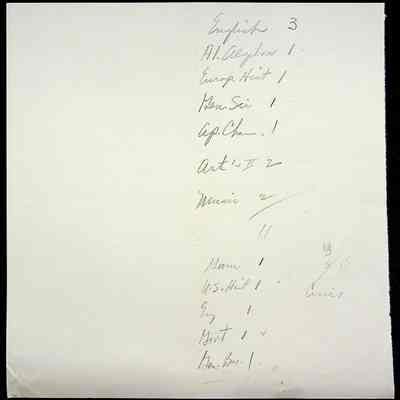 English 3
Al. Algebra 1
Europ. Hist 1
Gen. Sci 1
Ap. Chem. 1
Art I II 2
Music 2
11
1
U.S. Hist 1
Eng 1
Govt 1
Gen. Bus. 1